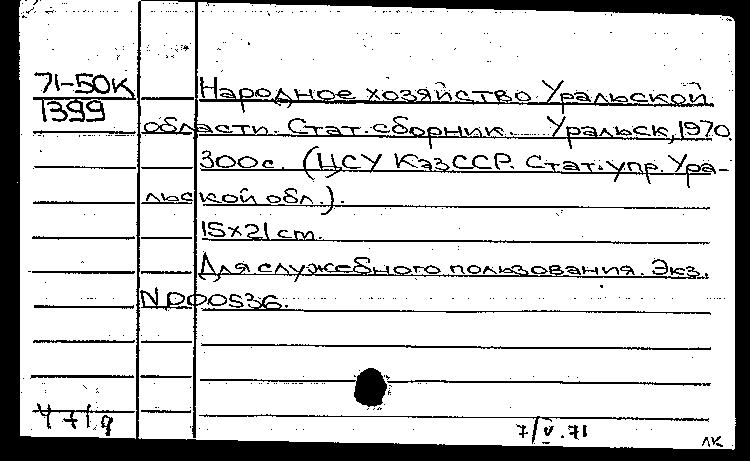 71-50К
1399
Народное хозяйство Уральской
области. Стат. сборник. Уральск, 1970.
300с. (ЦСУ КазССР. Стат. упр. Ура-
льской обл.).
15×21 cm.
Для служебного пользования. Экз.
N 000536.
7/V.71
лк